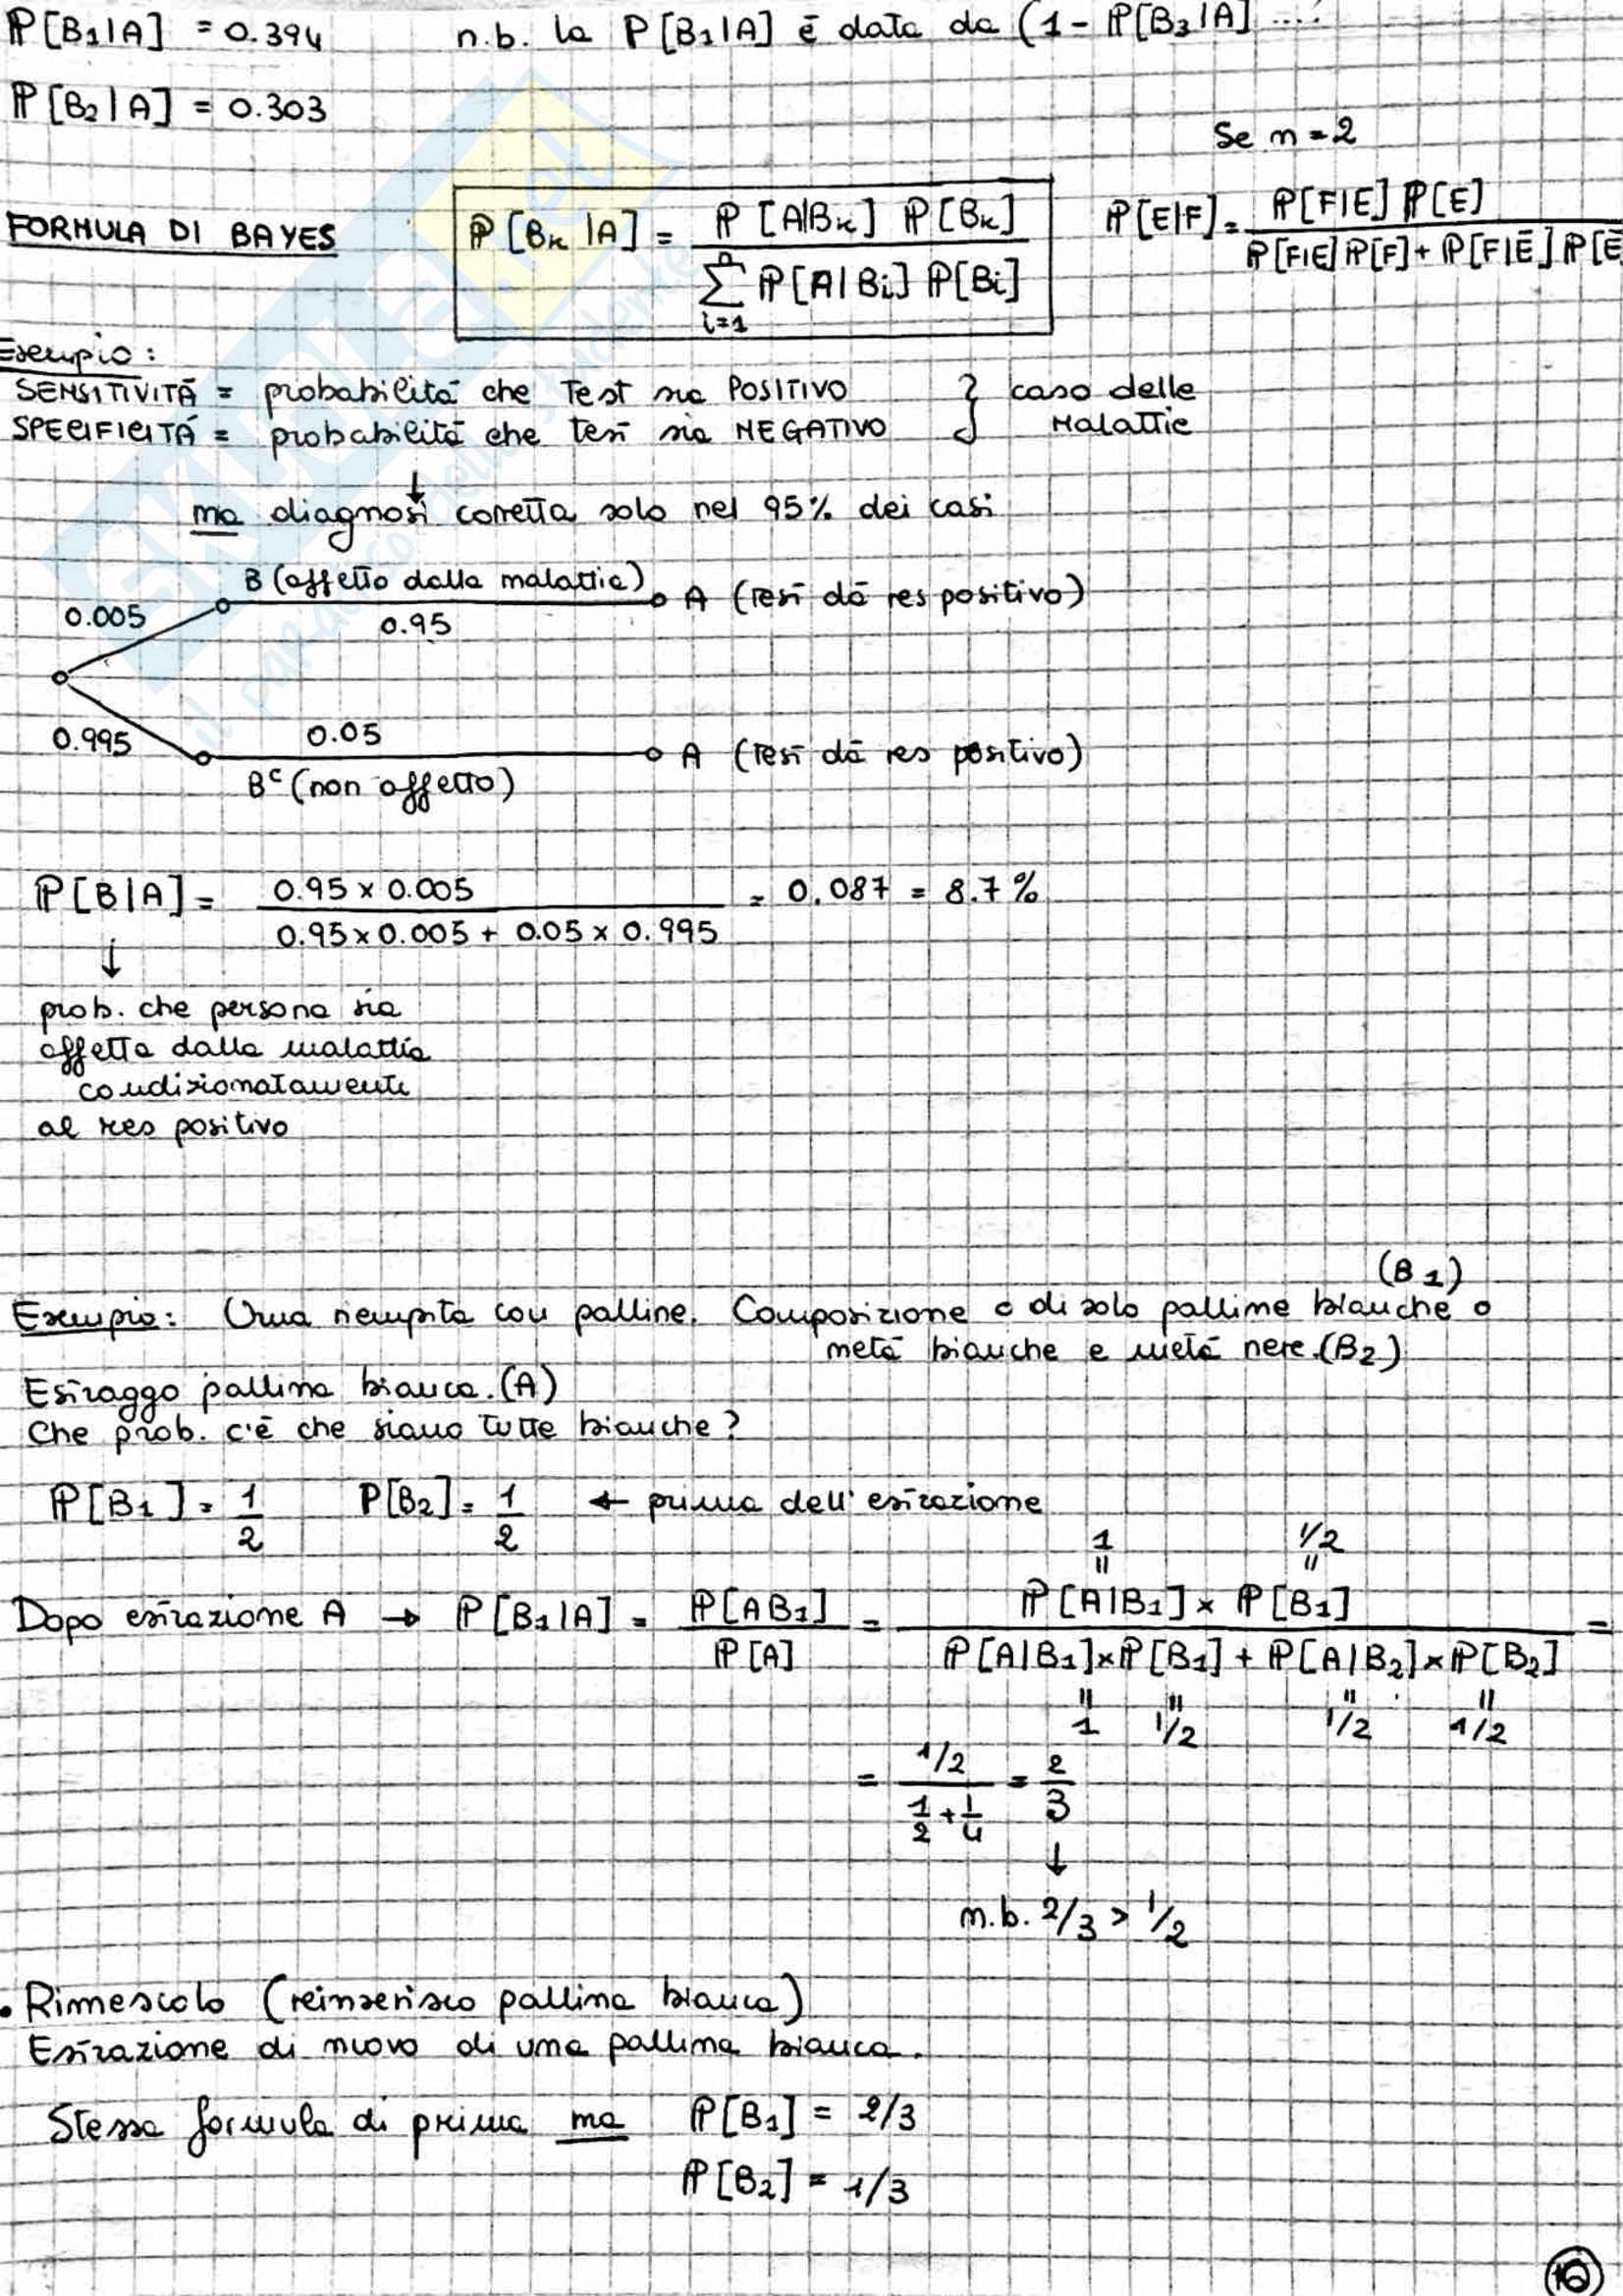 P[B₁|A] = 0.394 n.b. la P[B₁|A] è data da (1 - P[B₃|A] ....
P[B₂|A] = 0.303
Se n = 2
FORMULA DI BAYES P[Bₖ|A] = P[A|Bₖ] P[Bₖ] / ∑ᵢ₌₁ⁿ P[A|Bᵢ] P[Bᵢ] P[E|F] = P[F|E] P[E] / P[F|E] P[F] + P[F|Ē] P[Ē
Esempio:
SENSITIVITÀ = probabilità che Test sia POSITIVO } caso delle
SPECIFICITÀ = probabilità che test sia NEGATIVO } Malattie
↓
ma diagnosi corretta solo nel 95% dei casi
B (affetto dalla malattia) A (test dà res positivo)
0.005 0.95
0.995 0.05 A (Test dà res positivo)
Bᶜ (non affetto)
P[B|A] = 0.95 x 0.005 / 0.95 x 0.005 + 0.05 x 0.995 = 0.087 = 8.7%
↓
prob. che persona sia
affetta dalla malattia
condizionatamente
al res positivo
(B1)
Esempio: Urna riempita con palline. Composizione o di solo palline bianche o
metà bianche e metà nere.(B₂)
Estraggo pallina bianca.(A)
Che prob. c'è che siano tutte bianche?
P[B1] = 1/2 P[B₂] = 1/2 ← prima dell'estrazione
1 1/2
Dopo estrazione A → P[B₁|A] = P[AB₁] / P[A] = P[A|B₁] x P[B₁] / P[A|B₁] x P[B₁] + P[A|B₂] x P[B₂] =
1 1/2 1/2 1/2
= 1/2 / 1/2 + 1/4 = 2/3
↓
n.b. 2/3 > 1/2
• Rimescolo (reinserisco pallina bianca)
Estrazione di nuovo di una pallina bianca.
Stessa formula di prima ma P[B₁] = 2/3
P[B₂] = 1/3